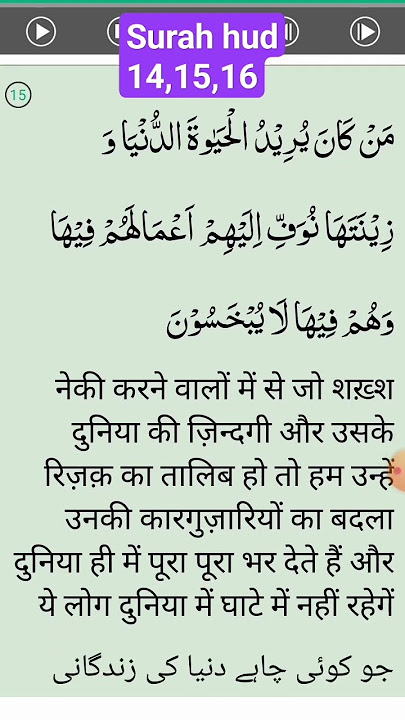 Surah hud
14,15,16
15
مَنْ كَانَ يُرِيْدُ الْحَيٰوةَ الدُّنْيَا وَ
زِيْنَتَهَا نُوَفِّ اِلَيْهِمْ اَعْمَالَهُمْ فِيْهَا
وَهُمْ فِيْهَا لَا يُبْخَسُوْنَ
नेकी करने वालों में से जो शख़्श
दुनिया की ज़िन्दगी और उसके
रिज़क़ का तालिब हो तो हम उन्हें
उनकी कारगुज़ारियों का बदला
दुनिया ही में पूरा पूरा भर देते हैं और
ये लोग दुनिया में घाटे में नहीं रहेगें
جو کوئی چاہے دنیا کی زندگانی